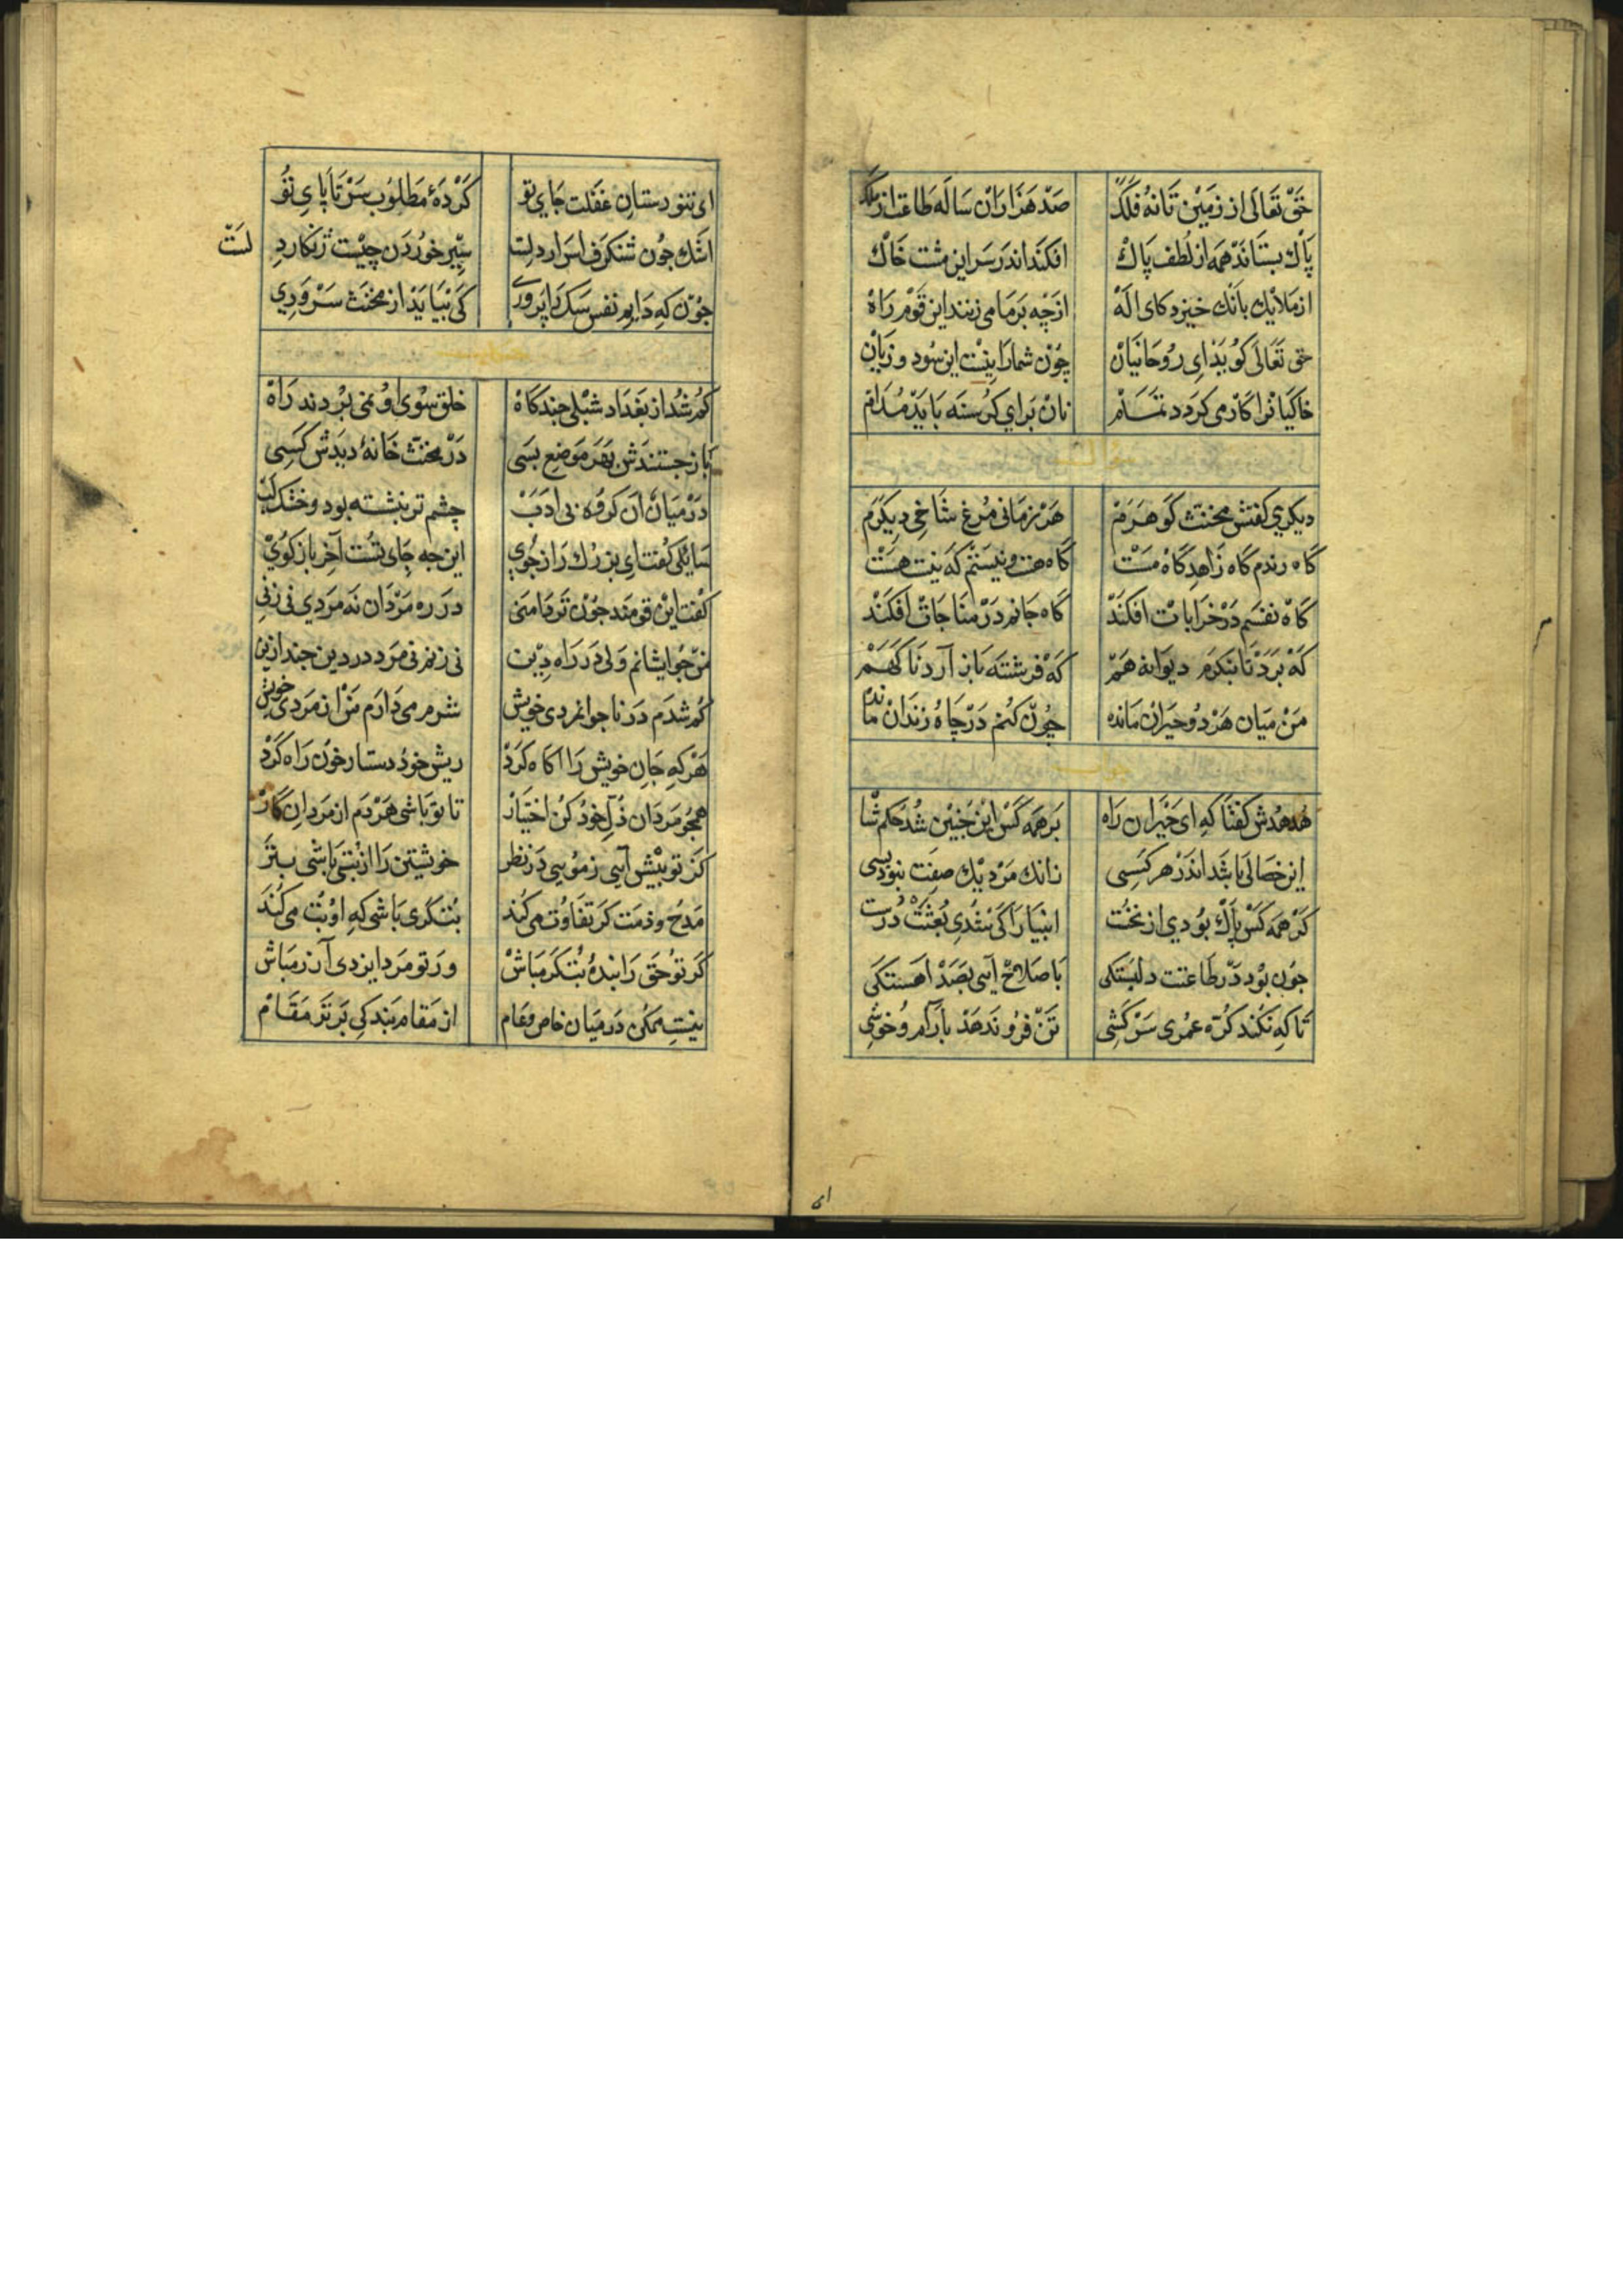 حق تعالی از زمین تا نه فلک صد هزاران ساله طاعت از ملک
پاک بستاند همه از لطف پاک افکند اندر سر این مشت خاک
از ملایک بانک خیزد کای اله از چه بر ما می زنند این قوم راه
حق تعالی کوید ای روحانیان چون شما را نیست این سود و زیان
خاکیانرا کار می کردد تمام نان برای کرسنه باید مدام
دیکری کفتش مخنث کوهرم هر زمانی مرغ شاخی دیکرم
گاه رندم گاه زاهد گاه مست گاه هست و نیستم که نیست هست
گاه نفسم در خرابات افکند گاه جانم در مناجات افکند
که برد تا بنکرم دیوانه هم که فرشته باز آرد ناکهم
من میان هر دو حیران مانده چون کنم در چاه و زندان مانده
هدهدش کفتا که ای حیران راه بر همه کس این چنین شد حکم شا
این خصالی باشد اندر هر کسی زانک مرد یک صفت نبود بسی
کر همه کس پاک بودی از نخست انبیا را کی شدی بعثت درست
جون بود در طاعتت دلبستکی با صلاح آیی بصد اهستکی
تا که نکند کره عمری سرکشی تن فرو ندهد بآرام و خوشی
ای
ای تنورستان غفلت جای تو کردهٔ مطلوب سر تا پای تو
اشک جون شنکرف اسرار دلت سیر خوردن چیست زنکار دلست
جون که دایم نفس سک را پروری کی نیاید از مخنث سروری
کم شد از بغداد شبلی جند کاه خلق سوی او نمی بردند راه
باز جستندش بهر موضع بسی در مخنث خانهٔ دیدش کسی
در میان آن کروه بی ادب چشم تر بنشسته بود و خشک لب
سایلی کفت ای بزرک راز جوی این جه جای تست آخر باز کوی
کفت این قومند جون تر دامنی در ره مردان نه مردی نی زنی
من جو ایشانم ولی در راه دین نی زنم نی مرد در دین جند ازین
کم شدم در ناجوانمردی خویش شرم می دارم من از مردی خویش
هر که جان خویش را آکاه کرد ریش خود دستار خون راه کرد
همجو مردان ذل خود کن اختیار تا تو باشی هر دم از مردان کار
کر تو بیش آیی ز مویی در نظر خویشتن را از بتی باشی بتر
مدح و ذمت کر تفاوت می کند بتکری باشی که او بت می کند
کر تو حق را بندهٔ بتکر مباش ور تو مرد ایزدی آزر مباش
نیست ممکن در میان خاص و عام از مقام بندکی برتر مقام